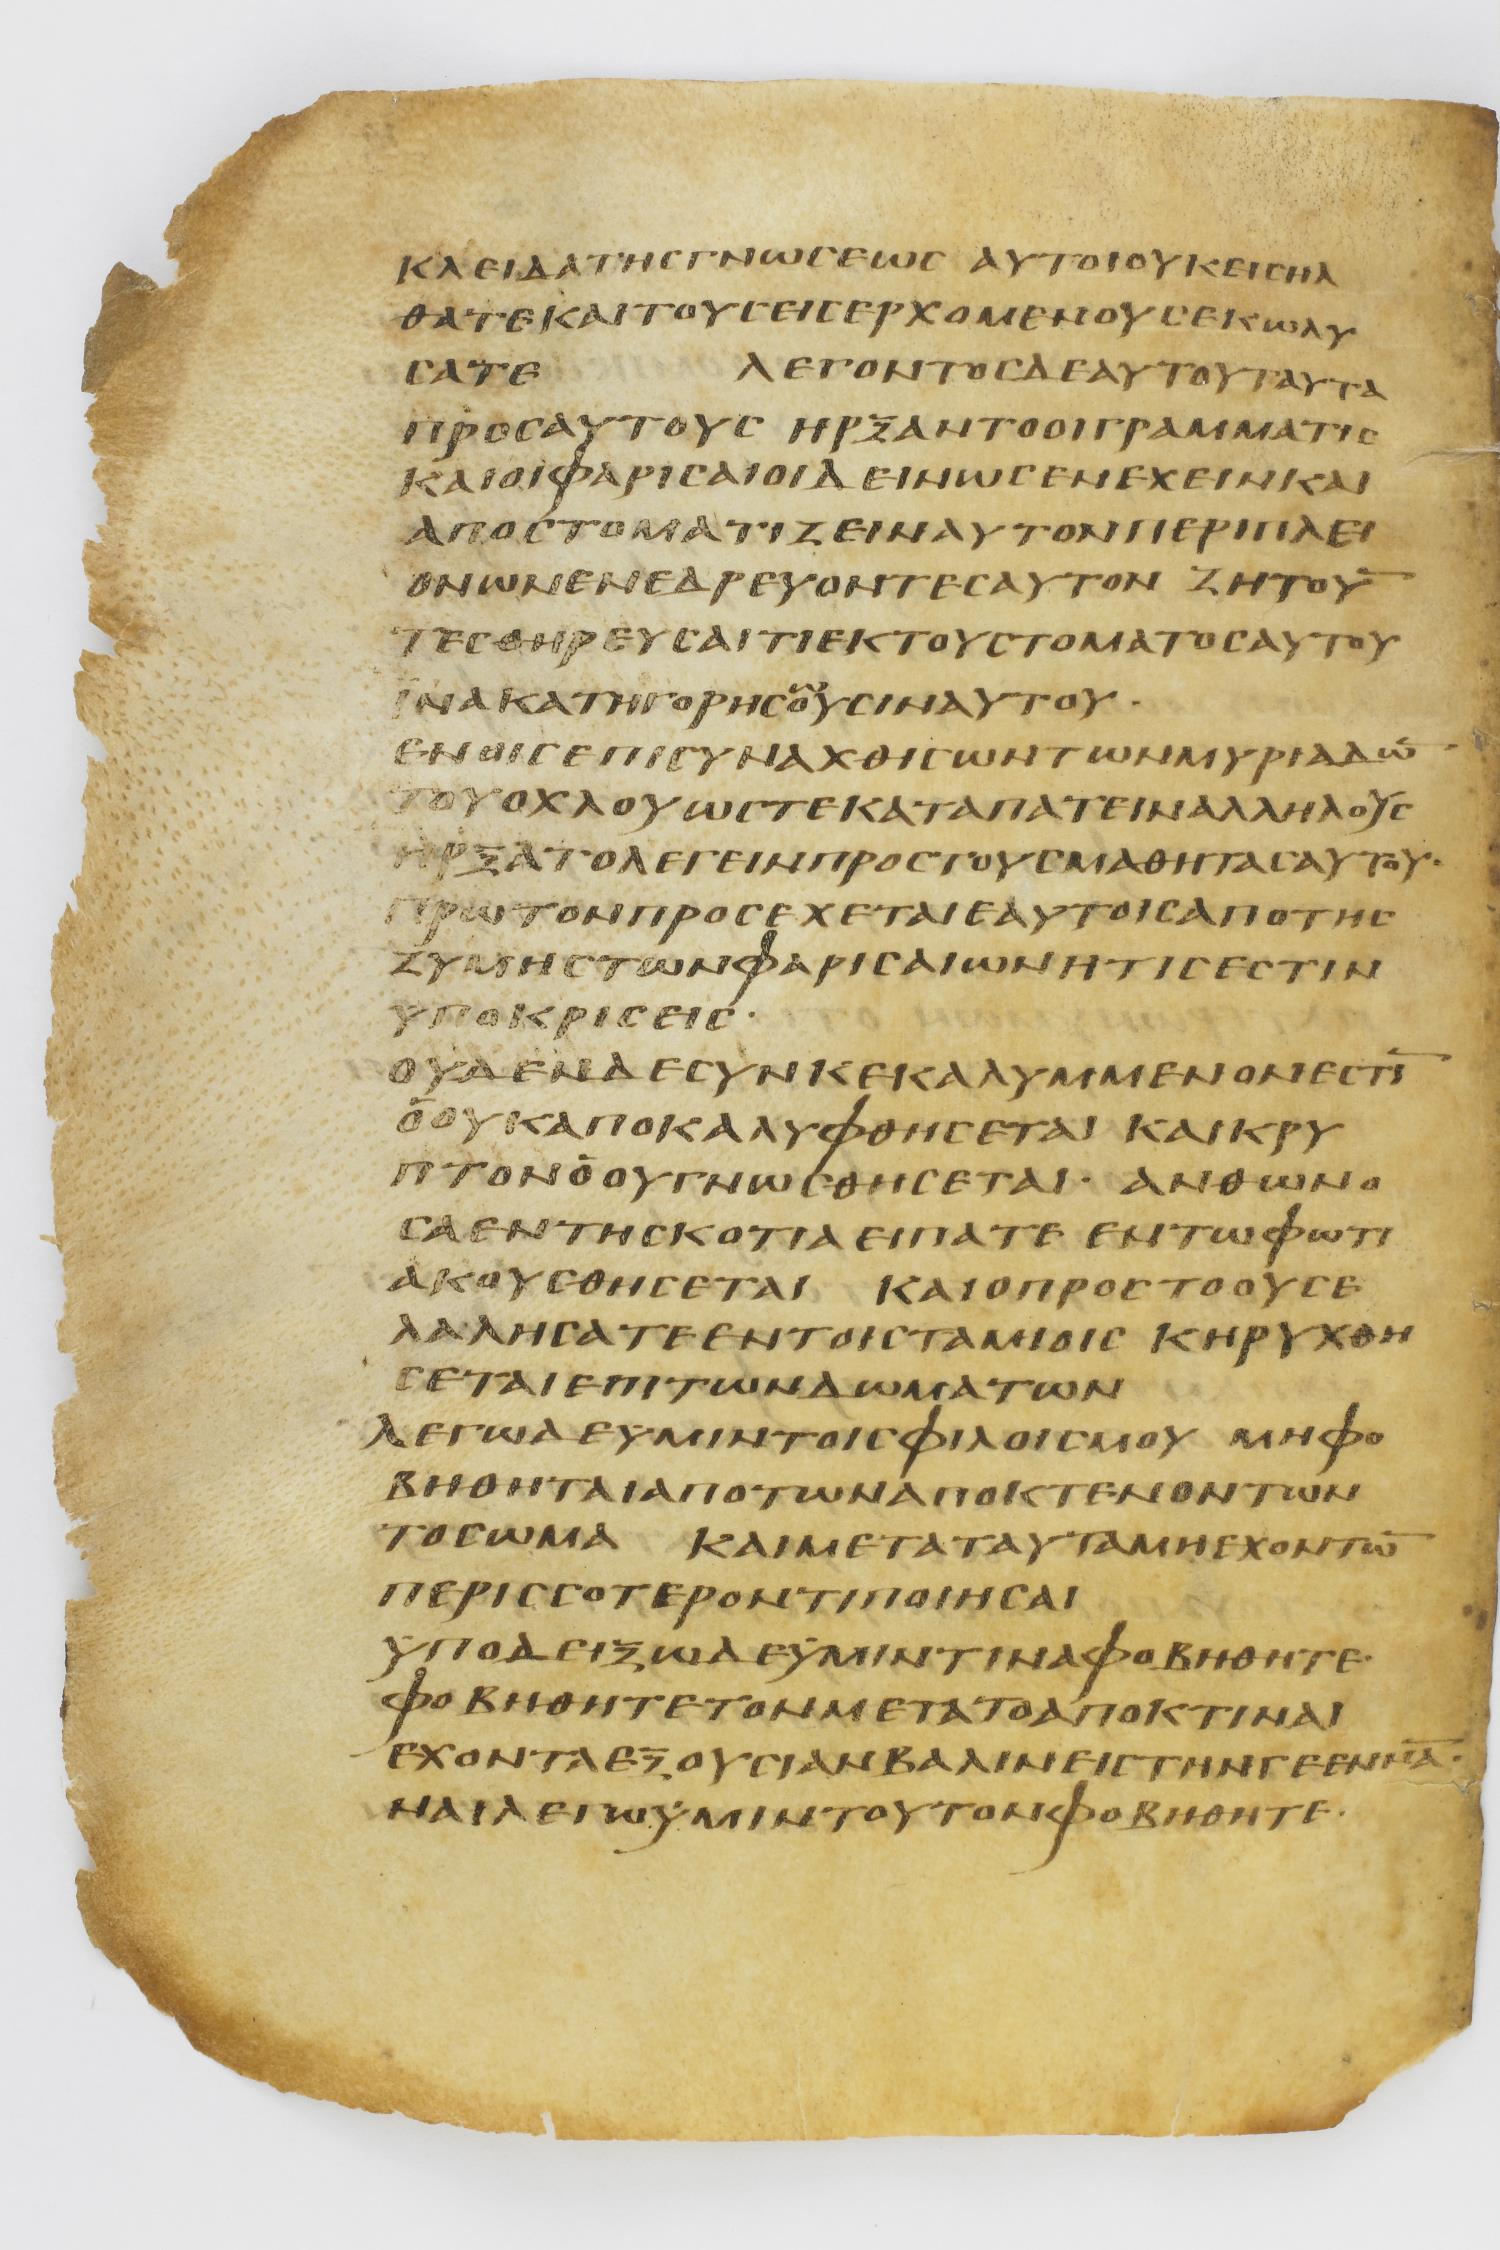 ΚΛΕΙΔΑΤΗΣΓΝΩΣΕΩΣ ΑΥΤΟΙΟΥΚΕΙΣΗΛ
ΘΑΤΕΚΑΙΤΟΥΣΕΙΣΕΡΧΟΜΕΝΟΥΣΕΚΩΛΥ
ΣΑΤΕ ΛΕΓΟΝΤΟΣΔΕΑΥΤΟΥΤΑΥΤΑ
ΠΡΟΣΑΥΤΟΥΣ ΗΡΞΑΝΤΟΟΙΓΡΑΜΜΑΤΙΣ
ΚΑΙΟΙΦΑΡΙΣΑΙΟΙΔΕΙΝΩΣΕΝΕΧΕΙΝΚΑΙ
ΑΠΟΣΤΟΜΑΤΙΖΕΙΝΑΥΤΟΝΠΕΡΙΠΛΕΙ
ΟΝΩΝΕΝΕΔΡΕΥΟΝΤΕΣΑΥΤΟΝ ΖΗΤΟΥ̅
ΤΕΣΘΗΡΕΥΣΑΙΤΙΕΚΤΟΥΣΤΟΜΑΤΟΣΑΥΤΟΥ
ΪΝΑΚΑΤΗΓΟΡΗΣΟΥ͞ΣΙΝΑΥΤΟΥ·
ΕΝΟΙΣΕΠΙΣΥΝΑΧΘΙΣΩΝΤΩΝΜΥΡΙΑΔΩ̅
ΤΟΥΟΧΛΟΥΩΣΤΕΚΑΤΑΠΑΤΕΙΝΑΛΛΗΛΟΥΣ
ΗΡΞΑΤΟΛΕΓΕΙΝΠΡΟΣΤΟΥΣΜΑΘΗΤΑΣΑΥΤΟΥ·
ΠΡΩΤΟΝΠΡΟΣΕΧΕΤΑΙΕΑΥΤΟΙΣΑΠΟΤΗΣ
ΖΥΜΗΣΤΩΝΦΑΡΙΣΑΙΩΝΗΤΙΣΕΣΤΙΝ
ΥΠΟΚΡΙΣΕΙΣ·
ΟΥΔΕΝΔΕΣΥΝΚΕΚΑΛΥΜΜΕΝΟΝΕΣΤΙ̅
ΟΟΥΚΑΠΟΚΑΛΥΦΘΗΣΕΤΑΙ ΚΑΙΚΡΥ
ΠΤΟΝΟΟΥΓΝΩΣΘΗΣΕΤΑΙ· ΑΝΘΩΝΟ
ΣΑΕΝΤΗΣΚΟΤΙΑΕΙΠΑΤΕ ΕΝΤΩΦΩΤΙ
ΑΚΟΥΣΘΗΣΕΤΑΙ ΚΑΙΟΠΡΟΣΤΟΟΥΣΕ
ΛΑΛΗΣΑΤΕΕΝΤΟΙΣΤΑΜΙΟΙΣ ΚΗΡΥΧΘΗ
ΣΕΤΑΙΕΠΙΤΩΝΔΩΜΑΤΩΝ
ΛΕΓΩΔΕΥΜΙΝΤΟΙΣΦΙΛΟΙΣΜΟΥ ΜΗΦΟ
ΒΗΘΗΤΑΙΑΠΟΤΩΝΑΠΟΚΤΕΝΟΝΤΩΝ
ΤΟΣΩΜΑ ΚΑΙΜΕΤΑΤΑΥΤΑΜΗΕΧΟΝΤΩ̅
ΠΕΡΙΣΣΟΤΕΡΟΝΤΙΠΟΙΗΣΑΙ
ΥΠΟΔΕΙΞΩΔΕΫΜΙΝΤΙΝΑΦΟΒΗΘΗΤΕ·
ΦΟΒΗΘΗΤΕΤΟΝΜΕΤΑΤΟΑΠΟΚΤΙΝΑΙ
ΕΧΟΝΤΑΕΞΟΥΣΙΑΝΒΑΛΙΝΕΙΣΤΗΝΓΕΕΝΝΑ̅·
ΝΑΙΛΕΓΩΫΜΙΝΤΟΥΤΟΝΦΟΒΗΘΗΤΕ·